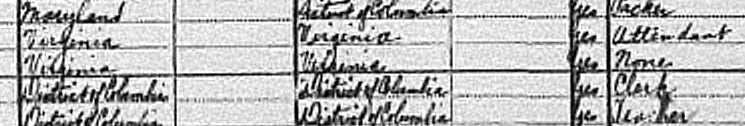 Maryland District of Columbia Yes Packer
Virginia Virginia Yes Attendant
Virginia Virginia Yes None
District of Columbia District of Columbia Yes Clerk
District of Columbia District of Columbia Yes Teacher